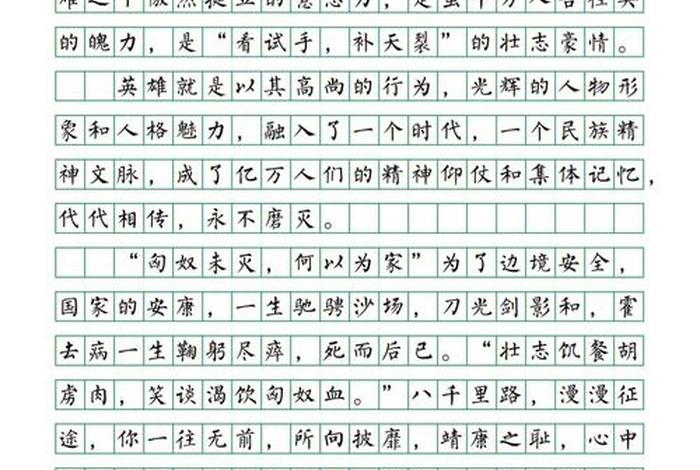 的魄力，是“看试手，补天裂”的壮志豪情。
英雄就是以其高尚的行为，光辉的人物形
象和人格魅力，融入了一个时代，一个民族精
神文脉，成了亿万人们的精神仰仗和集体记忆，
代代相传，永不磨灭。
“匈奴未灭，何以为家”为了边境安全，
国家的安康，一生驰骋沙场，刀光剑影和，霍
去病一生鞠躬尽瘁，死而后已。“壮志饥餐胡
虏肉，笑谈渴饮匈奴血。”八千里路，漫漫征
途，你一往无前，所向披靡，靖康之耻，心中